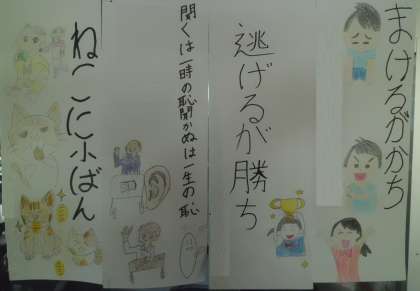 まけるがかち
逃げるが勝ち
聞くは一時の恥聞かぬは一生の恥
ねこに小ばん